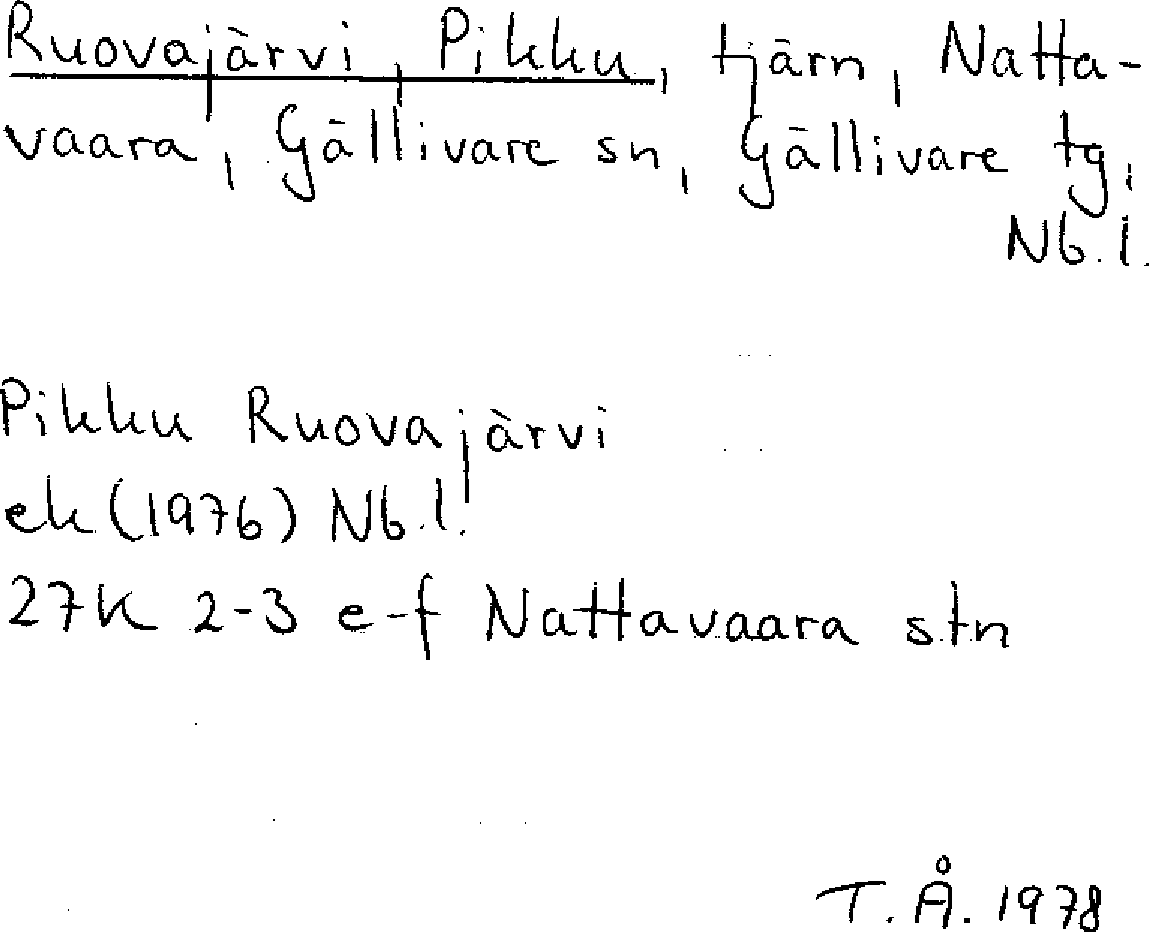 Ruovajärvi, Pikku, tjärn, Natta-
vaara, Gällivare sn, Gällivare tg,
Nb.l.
Pikku Ruovajärvi
ek (1976) Nb.l.
27K 2-3 e-f Nattavaara stn
T.Å. 1978